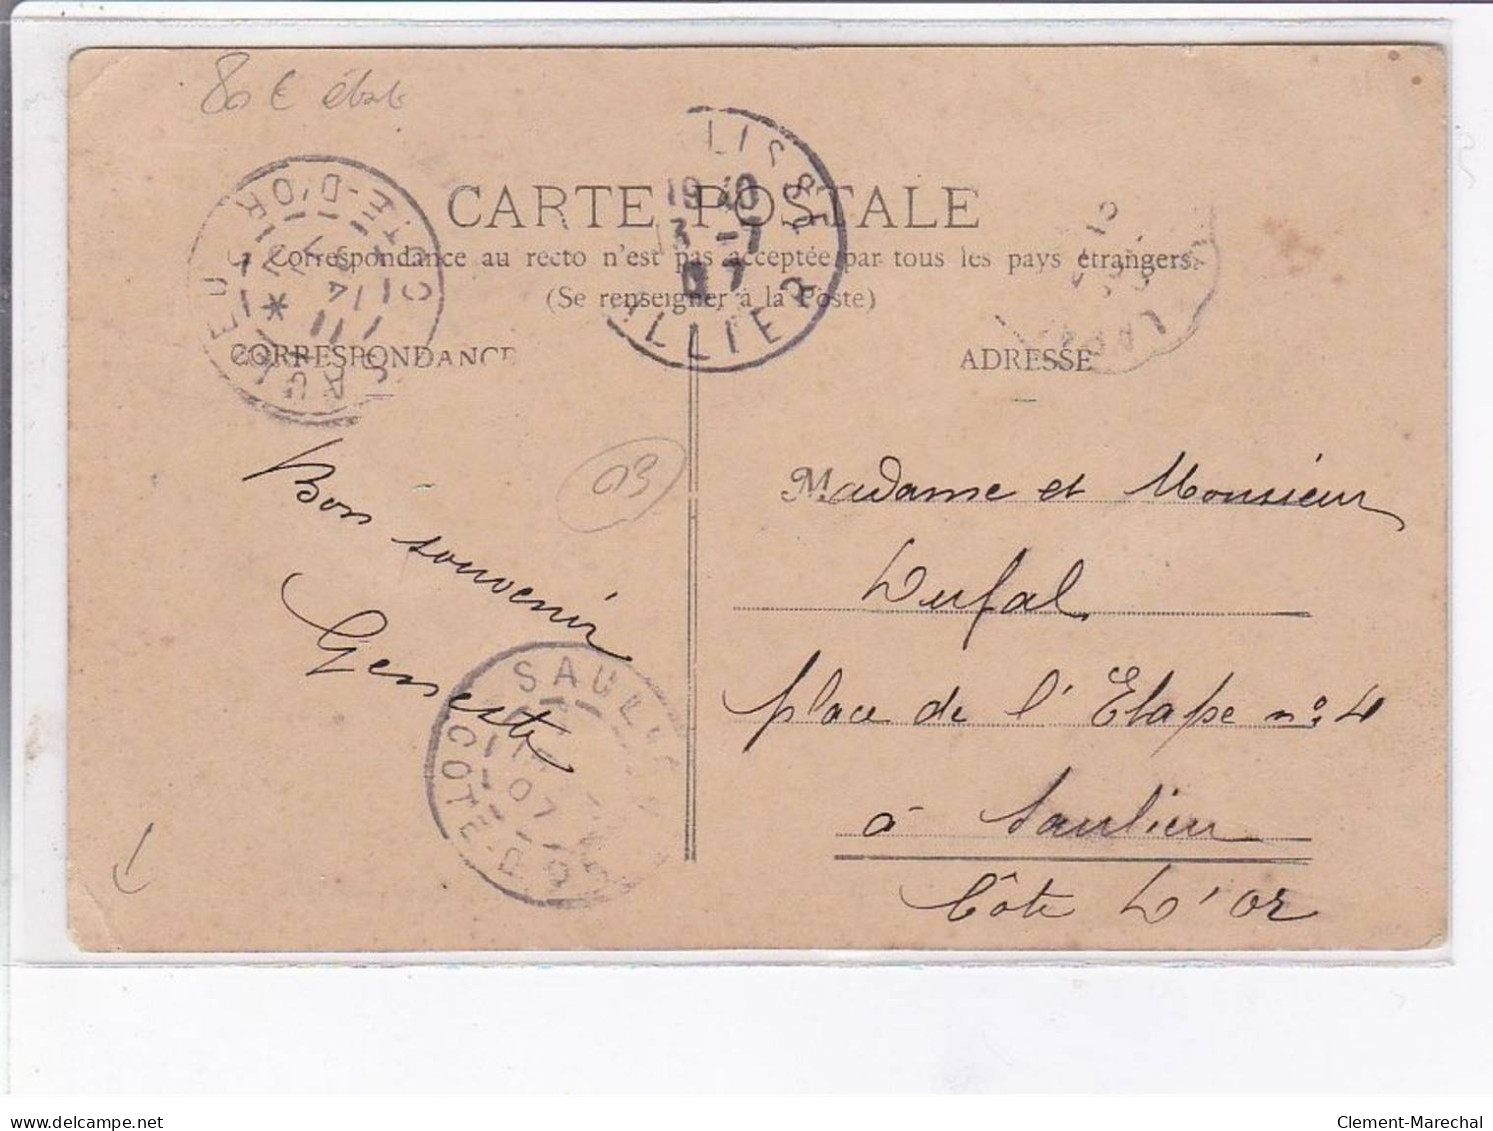 80 €
CARTE POSTALE
Correspondance au recto n'est pas acceptée par tous les pays étrangers.
(Se renseigner à la Poste)
CORRESPONDANCE
ADRESSE
SAULIEU
CÔTE-D'OR
LISSE
19 40
3 -7
07
ALLIER
03
Bon souvenir
Geneste
Madame et Monsieur
Dufal
place de l'Etape nº 4
à Saulieu
Côte D'Or
SAULIEU
CÔTE-D'OR
07
delcampe.net
Clement-Marechal